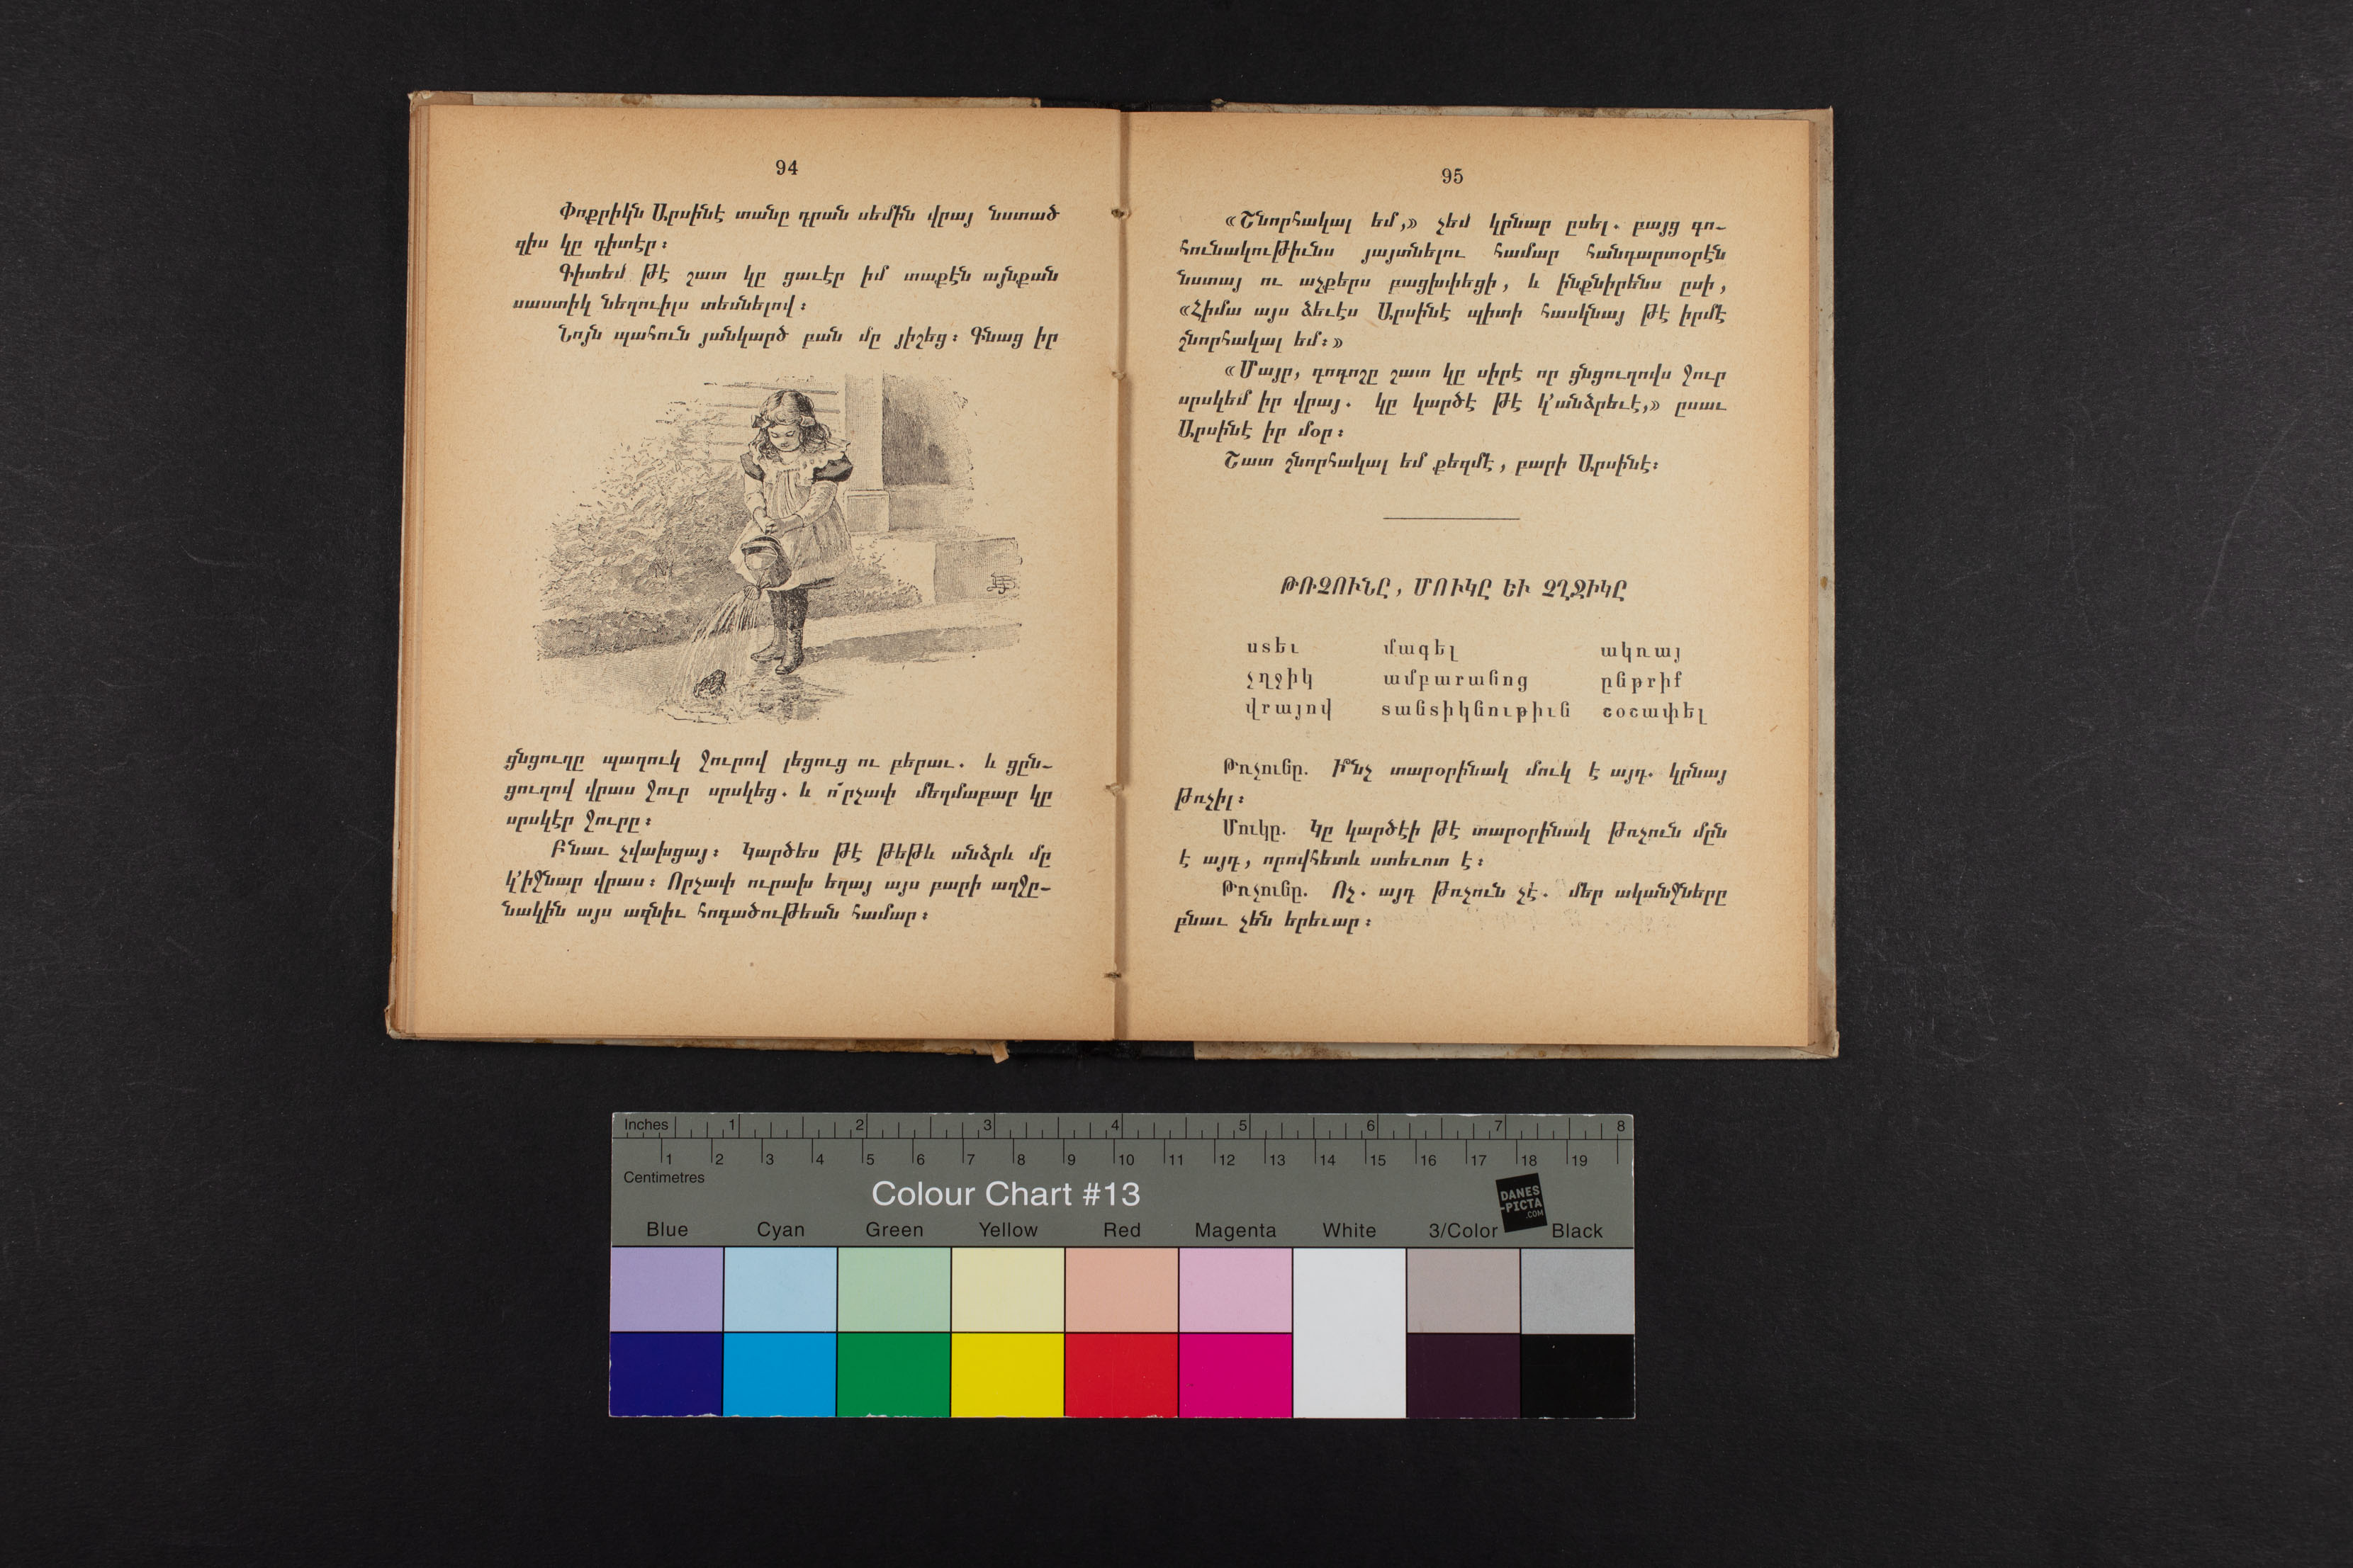 94
Փոքրիկն Արսինէ տանը դրան սեմին վրայ նստած
զիս կը դիտէր։
Գիտեմ թէ շատ կը ցաւէր իմ տաքէն այնքան
սաստիկ նեղուիլս տեսնելով։
Նոյն պահուն յանկարծ բան մը յիշեց։ Գնաց իր
ցնցուղը պաղուկ ջուրով լեցուց ու բերաւ. և ցըն-
ցուղով վրաս ջուր սրսկեց. և ո՜րչափ մեղմաբար կը
սրսկէր ջուրը։
Բնաւ չվախցայ։ Կարծես թէ թեթև անձրև մը
կ՚իջնար վրաս։ Որչափ ուրախ եղայ այս բարի աղջը-
նակին այս ազնիւ հոգածութեան համար։
95
«Շնորհակալ եմ,» չեմ կրնար ըսել. բայց գո-
հունակութիւնս յայտնելու համար հանդարտօրէն
նստայ ու աչքերս բացխփեցի, և ինքնիրենս ըսի,
«Հիմա այս ձեւէս Արսինէ պիտի հասկնայ թէ իրմէ
շնորհակալ եմ։»
«Մայր, դոդոշը շատ կը սիրէ որ ցնցուղովս ջուր
սրսկեմ իր վրայ. կը կարծէ թէ կ՚անձրեւէ,» ըսաւ
Արսինէ իր մօր։
Շատ շնորհակալ եմ քեզմէ, բարի Արսինէ։
ԹՌՉՈՒՆԸ, ՄՈՒԿԸ ԵՒ ՉՂՋԻԿԸ
ստեւ մագել ակռայ
չղջիկ ամբարանոց ընթրիք
վրայով տանտիկնութիւն շօշափել
Թռչունը. Ի՞նչ տարօրինակ մուկ է այդ. կրնայ
թռչիլ։
Մուկը. Կը կարծէի թէ տարօրինակ թռչուն մըն
է այդ, որովհետև ստեւոտ է։
Թռչունը. Ոչ. այդ թռչուն չէ. մեր ականջները
բնաւ չեն երեւար։
Inches 1 2 3 4 5 6 7 8
1 2 3 4 5 6 7 8 9 10 11 12 13 14 15 16 17 18 19
Centimetres
Colour Chart #13
DANES
-PICTA
.COM
Blue Cyan Green Yellow Red Magenta White 3/Color Black